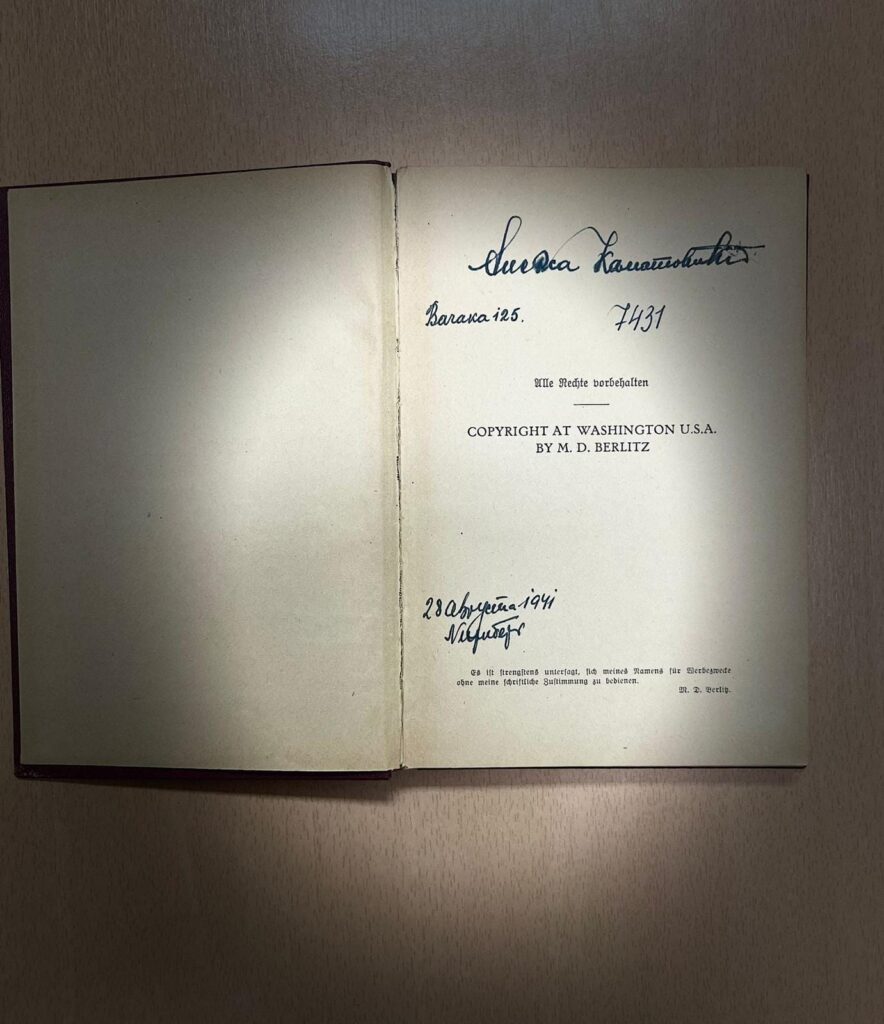 Барака 125. 7431
Alle Rechte vorbehalten
COPYRIGHT AT WASHINGTON U.S.A.
BY M. D. BERLITZ
28 Августа 1941
Es ist strengstens untersagt, sich meines Namens für Werbezwecke
ohne meine schriftliche Zustimmung zu bedienen.
M. D. Berlitz.